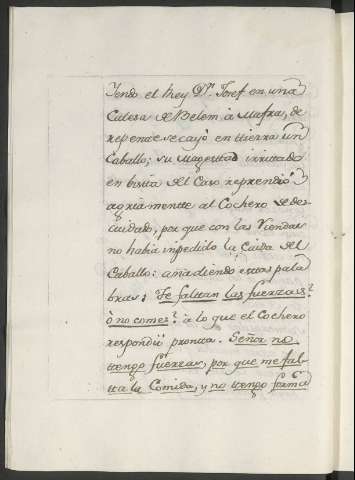 Yendo el Rey Dn. Josef en una
Calesa de Belem à Mafra, de
repente se cayò en tierra un
Caballo; su Magestad irritado
en bista del Caso reprendiò
agriamentte al Cochero de des-
cuidado, por que con las Riendas
no habia inpedido la Caida del
Caballo: añadiendo estas pala
bras: Te faltan las fuerzas?
ò no comes? à lo que el Cochero
respondiò prontto. Señor no
ttengo fuerzas, por que me fal-
tta la Comida, y no ttengo forma